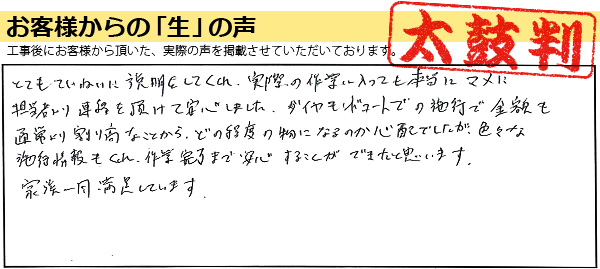 お客様からの「生」の声
工事後にお客様から頂いた、実際の声を掲載させていただいております。
太鼓判
とてもていねいに説明をしてくれ、実際の作業に入っても本当にマメに
担当者より連絡を頂けて安心しました。ダイヤモンドコートでの施行で金額も
通常より割り高なことから、どの程度の物になるのか心配でしたが、色々な
施行情報もくれ、作業完了まで安心することができたと思います。
家族一同満足しています。